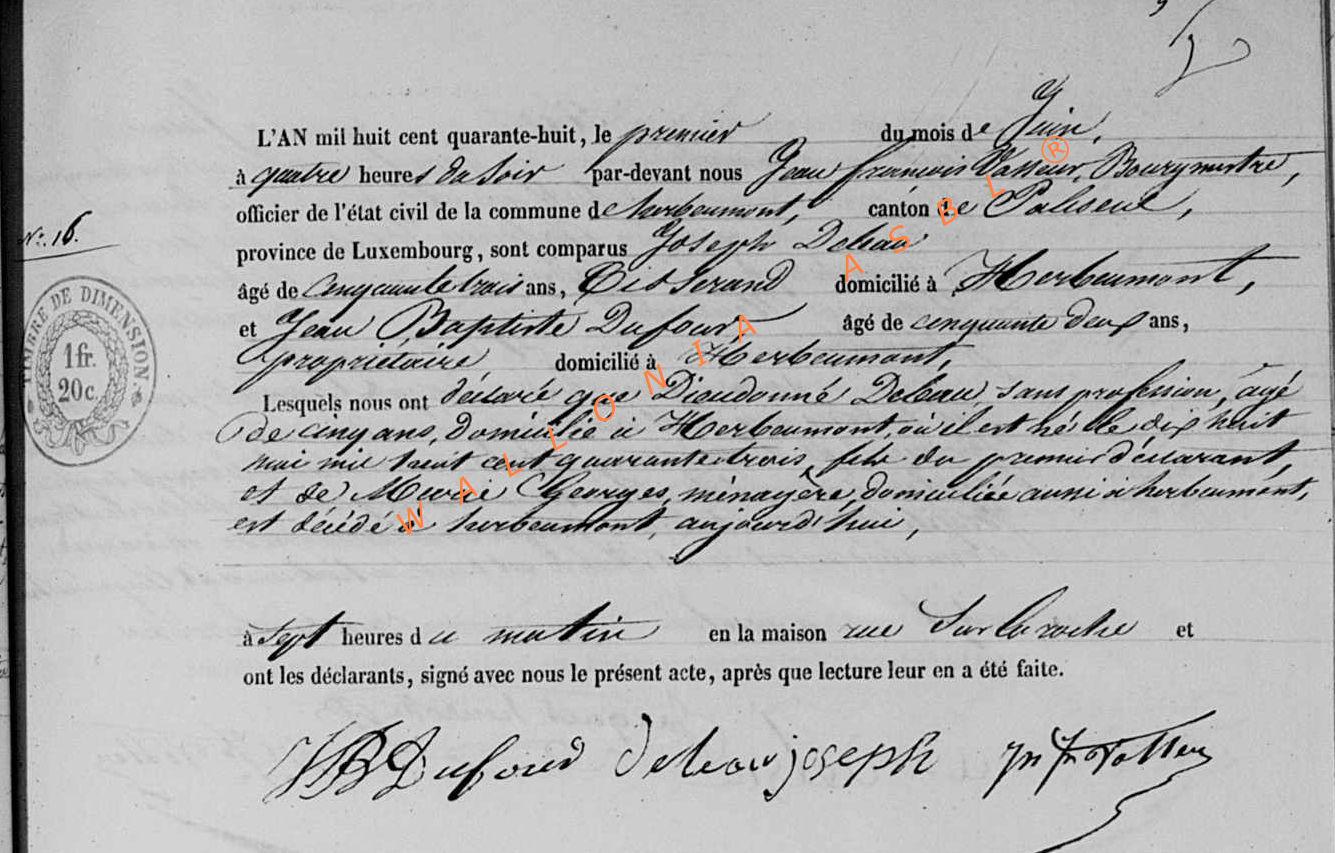 L'AN mil huit cent quarante-huit, le premier du mois de Juin,
à quatre heures du soir par-devant nous Jean françois Vasseur, Bourgmestre,
officier de l'état civil de la commune de herbeumont, canton de Paliseul,
N.° 16.
province de Luxembourg, sont comparus Joseph Debeau
âgé de Cinquante trois ans, Tisserand domicilié à Herbeumont,
et Jean Baptiste Dufour âgé de cinquante deux ans,
propriétaire domicilié à Herbeumont,
Lesquels nous ont déclaré que Dieudonné Debeau, sans profession, âgé
de cinq ans, domicilié à Herbeumont, où il est né le dix huit
mai mil huit cent quarante trois, fils du premier déclarant,
et de Marie Georges, ménagère, domiciliée aussi à herbeumont,
est décédé à herbeumont, aujourd'hui,
à Sept heures du matin en la maison rue Sur la roche et
ont les déclarants, signé avec nous le présent acte, après que lecture leur en a été faite.
JB Dufour debeau joseph
TIMBRE DE DIMENSION.
1 fr.
20 c.
WALLONIA ASBL ®